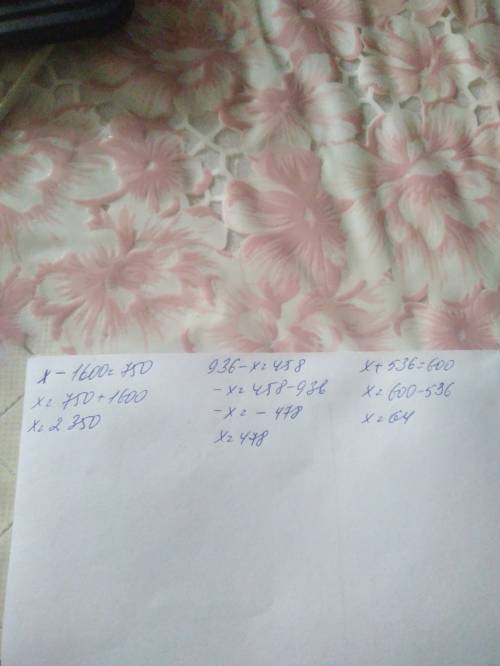 x - 1600 = 750
x = 750 + 1600
x = 2 350
936 - x = 458
- x = 458 - 936
- x = - 478
x = 478
x + 536 = 600
x = 600 - 536
x = 64